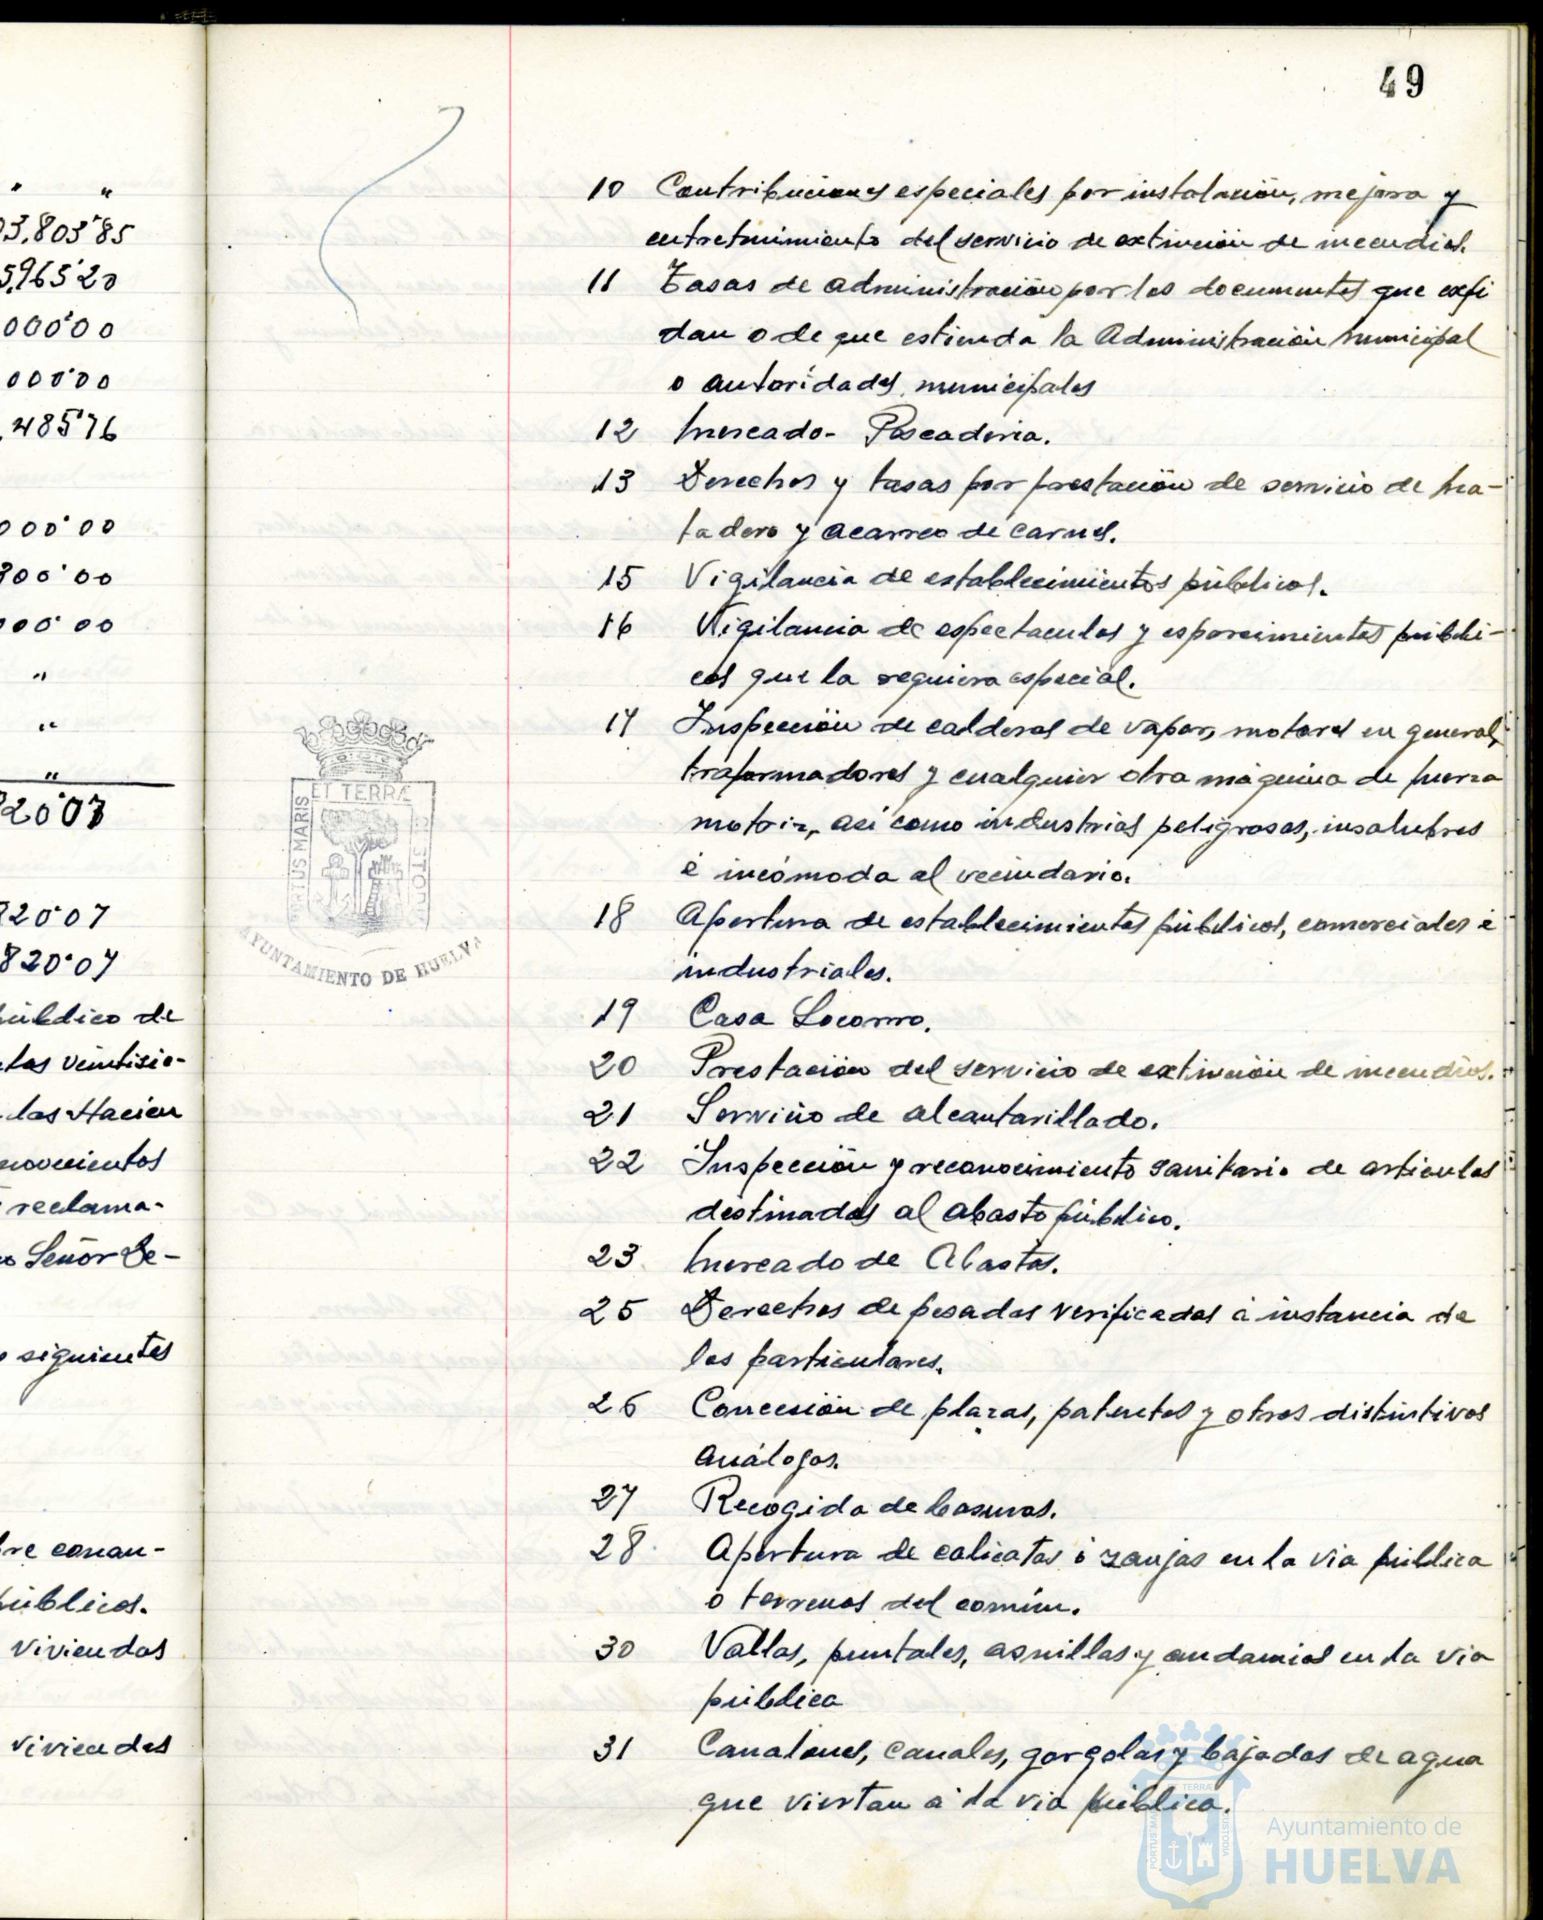 03.803'85
5,965'20
000'00
00'00
,485'76
000'00
300'00
000'00
820'07
820'07
820'07
público de
tos veintisie-
las Hacien
novecientos
reclama-
Señor De-
siguientes
re conau-
públicos.
viviendas
viviendas
49
10 Contribuciones especiales por instalación, mejora y
entretenimiento del servicio de extinción de incendios.
11 Tasas de administración por los documentos que expi
dan o de que estienda la Administración municipal
o autoridades municipales
12 Mercado- Pescaderia.
13 Derechos y tasas por prestación de servicio de Ma-
tadero y acarreo de carnes.
15 Vigilancia de establecimientos públicos.
16 Vigilancia de espectaculos y esparcimientos públi-
cos que la requiera especial.
17 Inspección de calderas de vapor, motores en general,
traformadores y cualquier otra máquina de fuerza
motriz, asi como industrias peligrosas, insalubres
é incómoda al vecindario.
18 Apertura de establecimientos públicos, comerciales é
industriales.
19 Casa Socorro.
20 Prestación del servicio de extinción de incendios.
21 Servicio de alcantarillado.
22 Inspección y reconocimiento sanitario de articulos
destinados al abasto público.
23 Mercado de Abastos.
25 Derechos de pesadas verificadas á instancia de
los particulares.
26 Concesión de plazas, patentes y otros distintivos
análogos.
27 Recogida de basuras.
28 Apertura de calicatas ó zanjas en la via pública
ó terrenos del común.
30 Vallas, puntales, asnillas y andamios en la via
pública
31 Canalones, canales, gorgolas y bajadas de agua
que viertan á la via pública.
PORTUS MARIS
ET TERRÆ
CUSTODIA
AYUNTAMIENTO DE HUELVA
PORTUS MARIS
ET TERRÆ
CUSTODIA
Ayuntamiento de
HUELVA